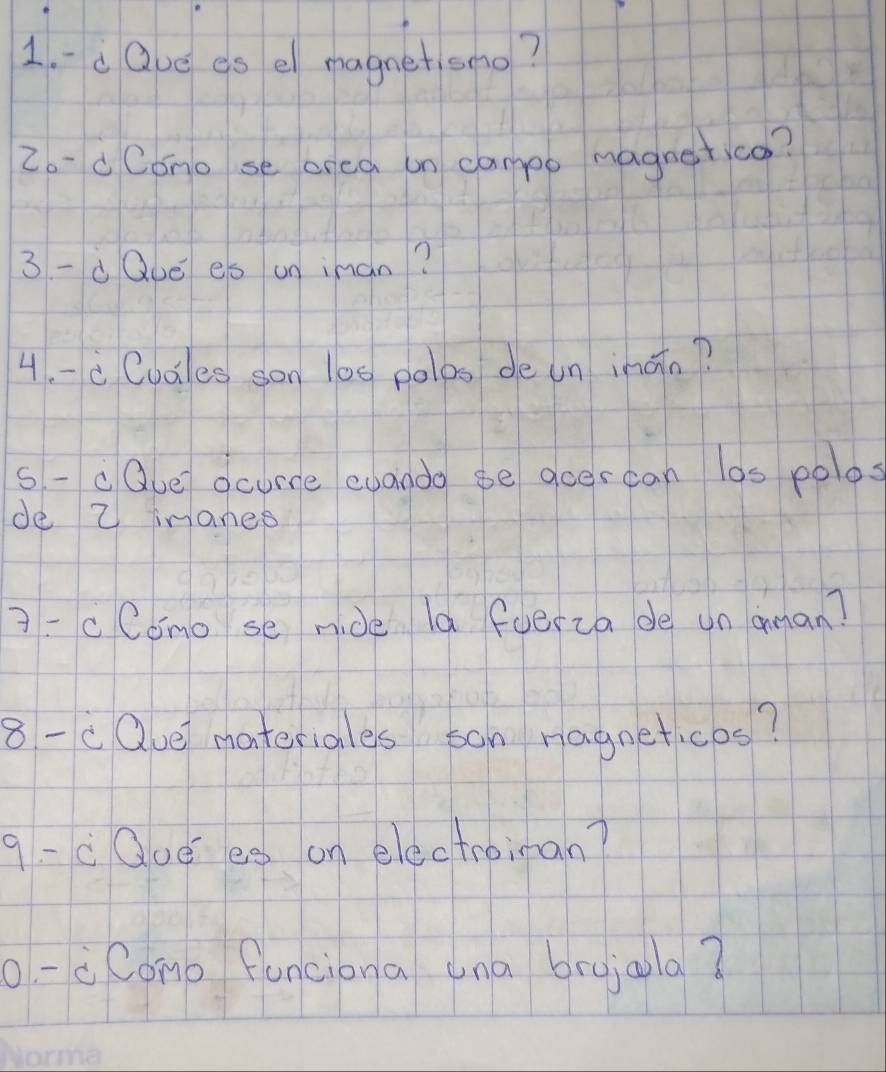 1.- ¿Qué es el magnetismo?
2.- ¿Cómo se crea un campo magnetico?
3.- ¿Qué es un iman?
4.- ¿Cuáles son los polos de un imán?
5.- ¿Qué ocurre cuando se acercan los polos
de 2 imanes
7.- ¿Cómo se mide la fuerza de un iman?
8-¿Qué materiales son magneticos?
9-¿Qué es un electroiman?
0.-¿Como funciona una brujula?
Norma